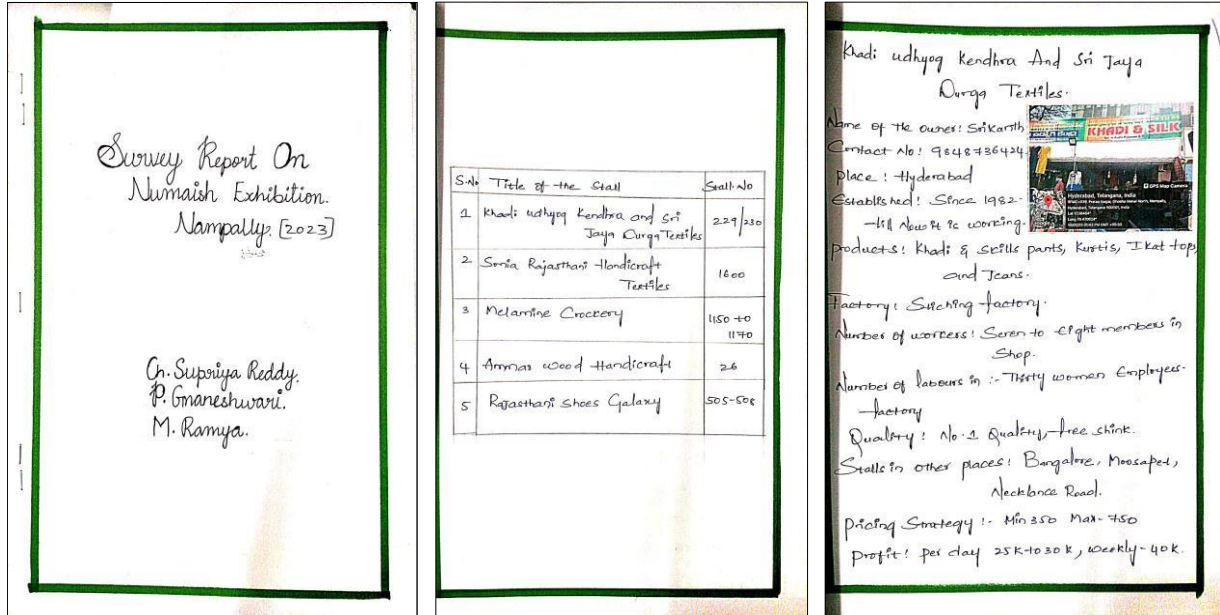 Survey Report On
Numaish Exhibition.
Nampally. [2023]
Ch. Supriya Reddy.
P. Gnaneshwari.
M. Ramya.
S.No Title of the Stall Stall.No
1 Khadi udhyog Kendhra and Sri
Jaya Durga Textiles 229/230
2 Sonia Rajasthani Handicraft
Textiles 1600
3 Melamine Crockery 1150 to
1170
4 Ammar wood Handicraft 26
5 Rajasthani Shoes Galaxy 505-508
Khadi udhyog Kendhra And Sri Jaya
Durga Textiles.
Name of the owner: Srikanth
Contact No: 9848736424
Place: Hyderabad
Established: Since 1982-
till Now it is working.
KHADI & SILK
GPS Map Camera
Hyderabad, Telangana, India
Products: Khadi & Skills pants, Kurtis, Ikat tops,
and Jeans.
Factory: Stiching factory.
Number of workers: Seven to Eight members in
Shop.
Number of labours in :- Thirty women Employees-
factory
Quality: No.1 Quality, free shink.
Stalls in other places: Bangalore, Moosapet,
Necklance Road.
Pricing Strategy :- Min 350 Max-750
Profit: per day 25K to 30K, weekly-40K.